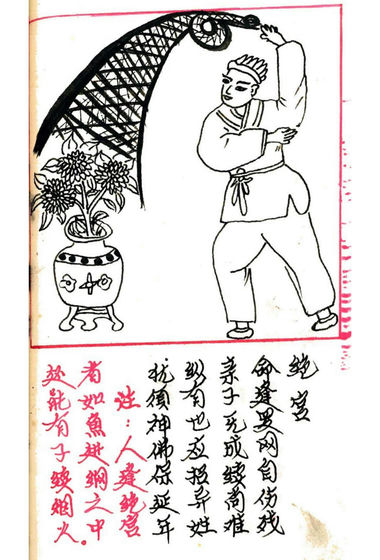 绝宫
命逢罗网自伤残
亲子无成续尚难
纵有也应招弃姓
犹须神佛保延年
注：人逢绝宫
者如魚进網之中
还能有子续烟火。